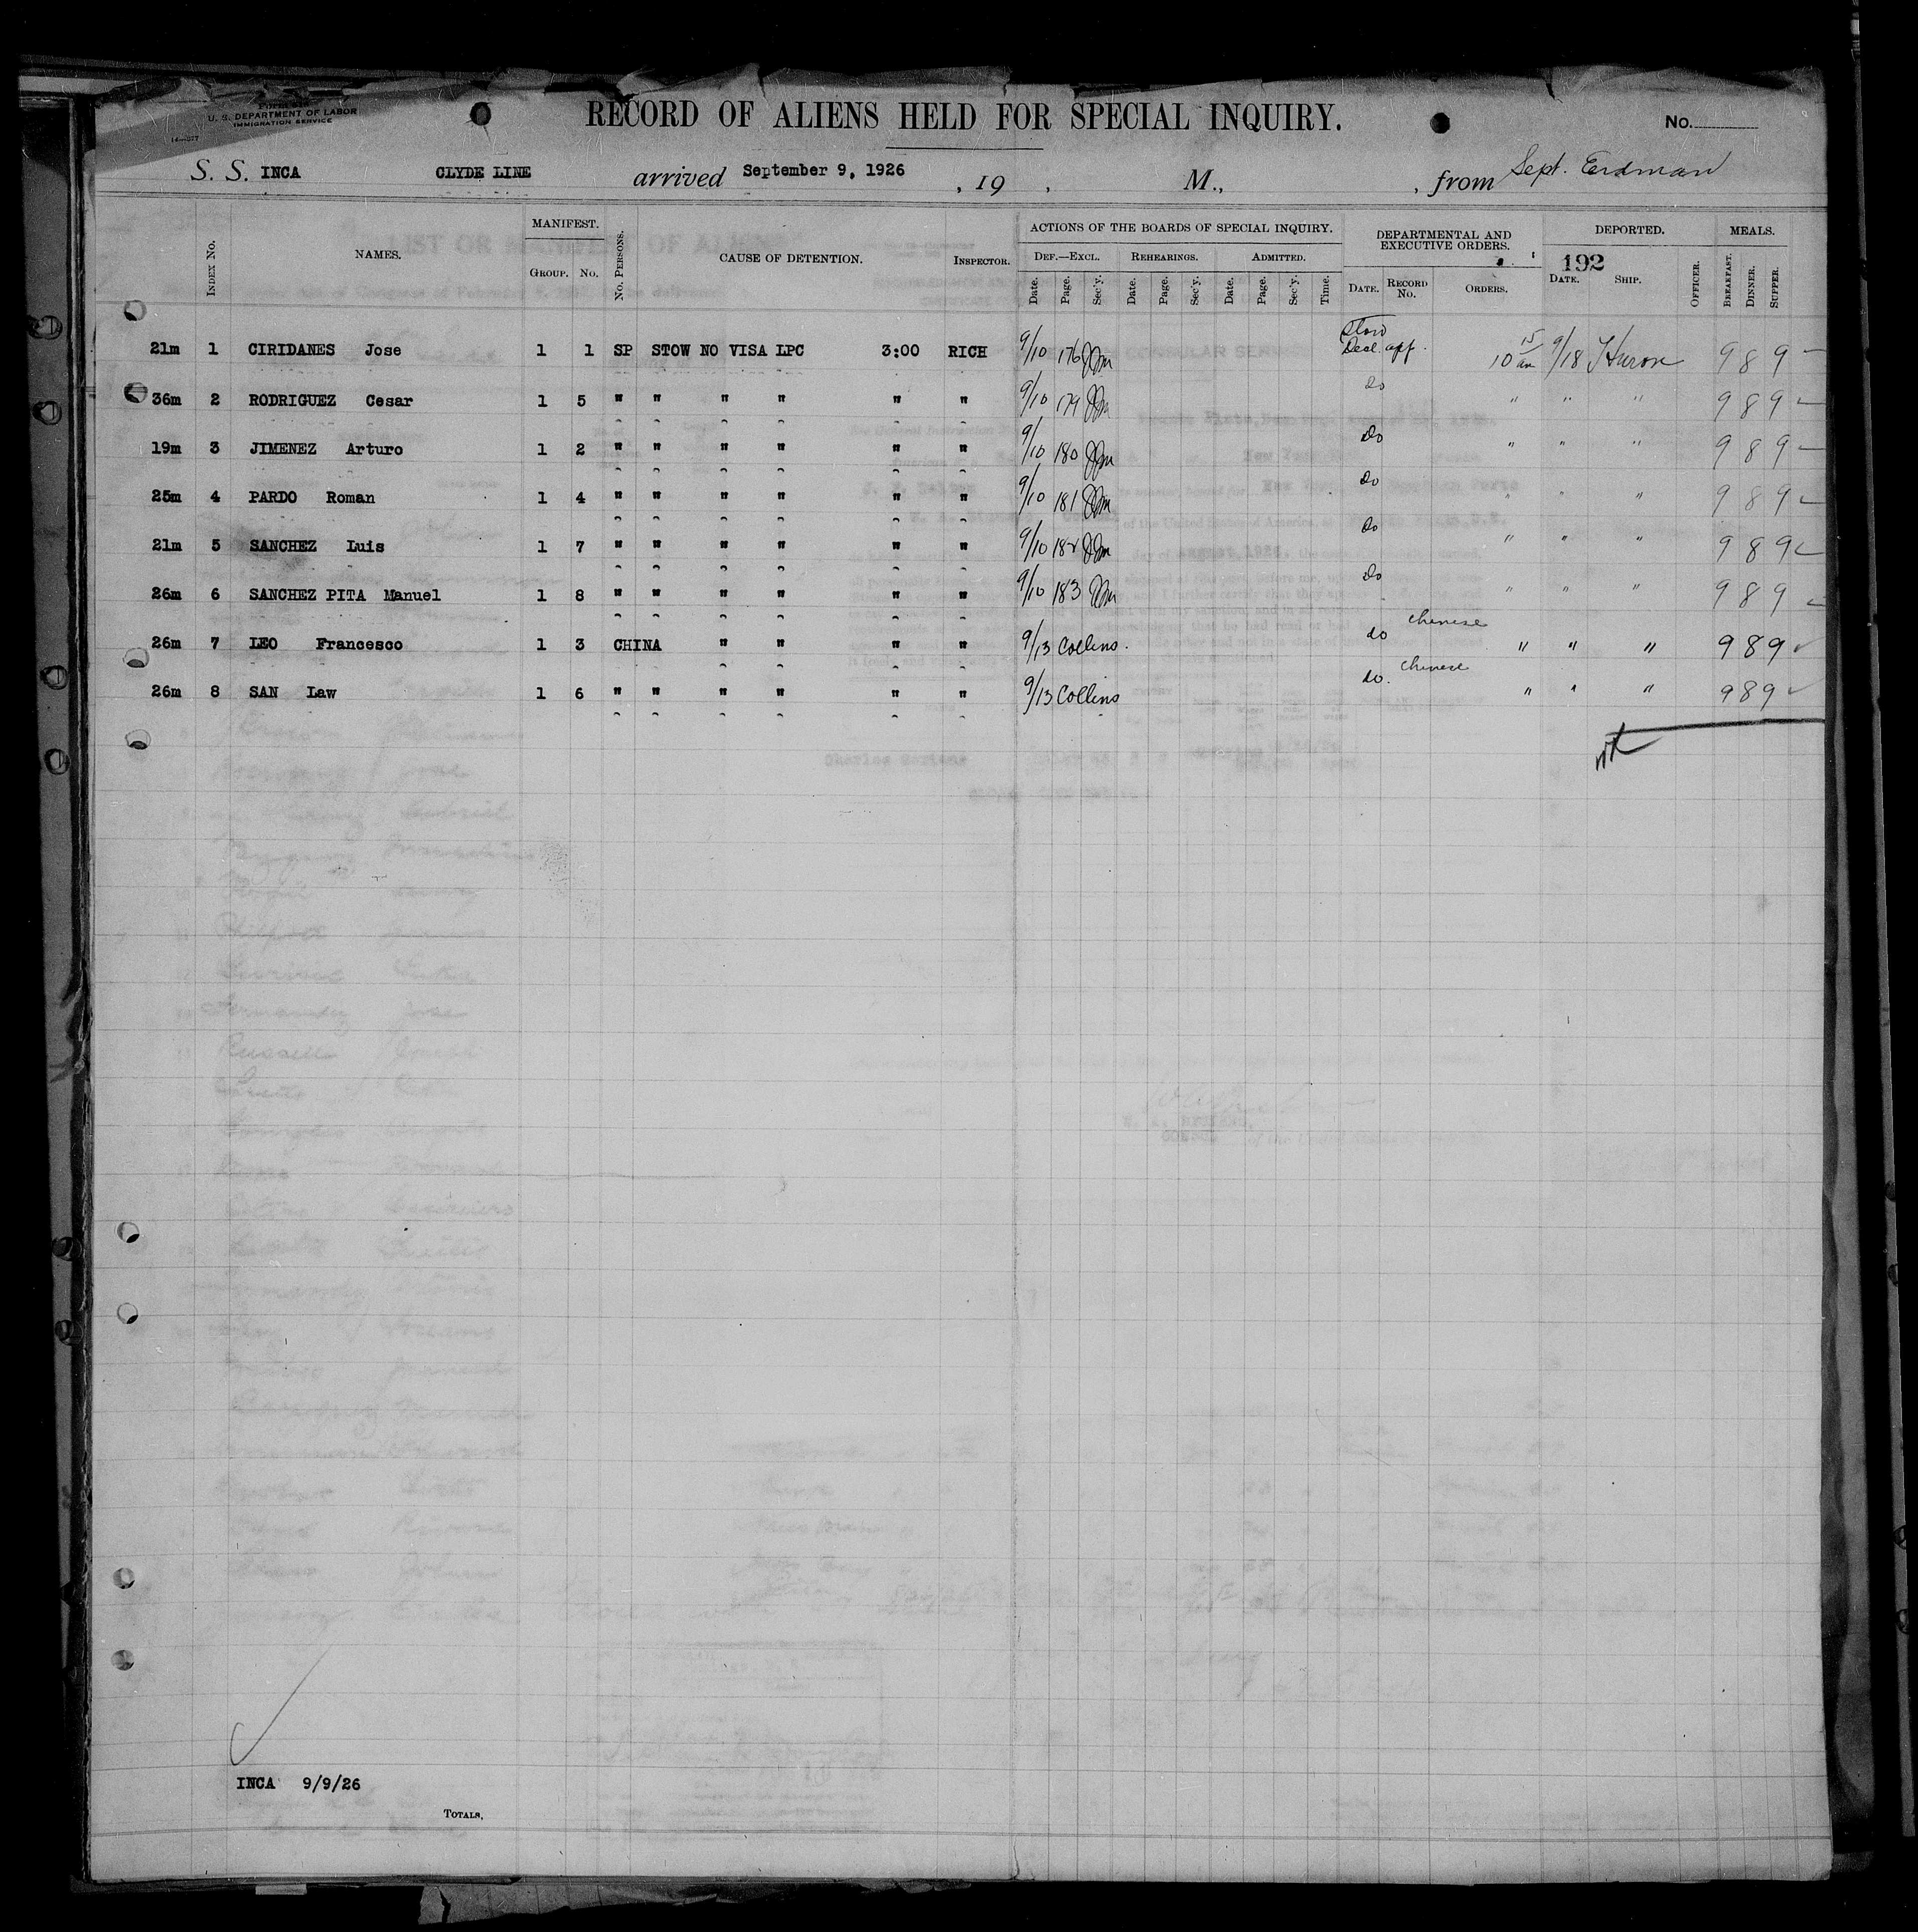 U. S. DEPARTMENT OF LABOR
IMMIGRATION SERVICE
RECORD OF ALIENS HELD FOR SPECIAL INQUIRY.
No.
S. S. INCA CLYDE LINE arrived September 9, 1926 , 19 , M., , from Sept. Erdman
INDEX No. NAMES. MANIFEST. GROUP. No. No. PERSONS. CAUSE OF DETENTION. INSPECTOR. ACTIONS OF THE BOARDS OF SPECIAL INQUIRY. DEPARTMENTAL AND EXECUTIVE ORDERS. DEPORTED. MEALS.
DEF.—EXCL. REHEARINGS. ADMITTED. 192
Date. Page. Sec'y. Date. Page. Sec'y. Date. Page. Sec'y. Time. DATE. RECORD No. ORDERS. DATE. SHIP. OFFICER. BREAKFAST. DINNER. SUPPER.
21m 1 CIRIDANES Jose 1 1 SP STOW NO VISA LPC 3:00 RICH 9/10 176 Stow Decl. app. 10 15 am 9/18 Huron 9 8 9
36m 2 RODRIGUEZ Cesar 1 5 " " " " " " 9/10 179 do " " " 9 8 9
19m 3 JIMENEZ Arturo 1 2 " " " " " " 9/10 180 do " " " 9 8 9
25m 4 PARDO Roman 1 4 " " " " " " 9/10 181 do " " " 9 8 9
21m 5 SANCHEZ Luis 1 7 " " " " " " 9/10 182 do " " " 9 8 9
26m 6 SANCHEZ PITA Manuel 1 8 " " " " " " 9/10 183 do " " " 9 8 9
26m 7 LEO Francesco 1 3 CHINA " " " " 9/13 Collins. do Chinese " " " 9 8 9
26m 8 SAN Law 1 6 " " " " " " 9/13 Collins do. Chinese " " " 9 8 9
INCA 9/9/26
TOTALS,